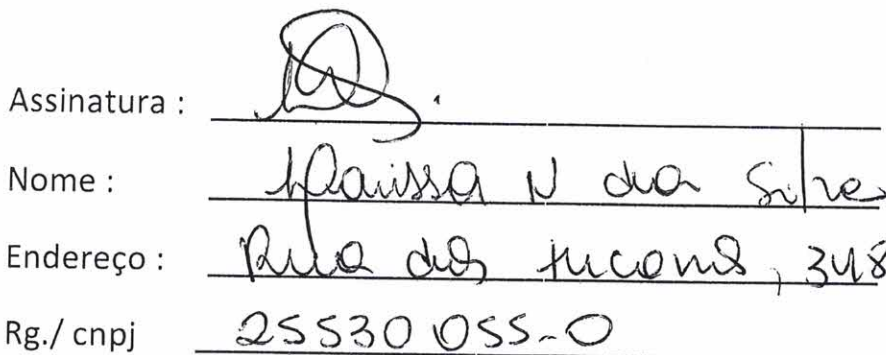 Assinatura :
Nome : N da Silva
Endereço : Rua dos tucanos, 348
Rg./ cnpj 25530055-0